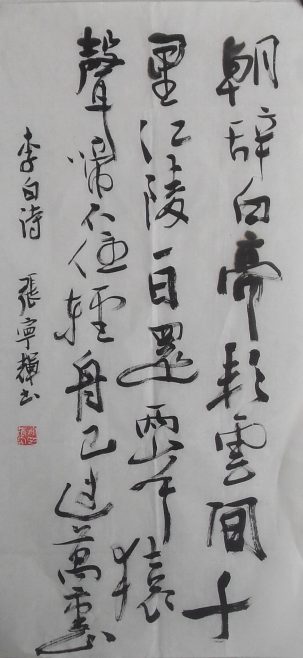 朝辞白帝彩雲間千
里江陵一日還兩岸猿
聲啼不住輕舟已過萬重山
李白詩 張寧輝书